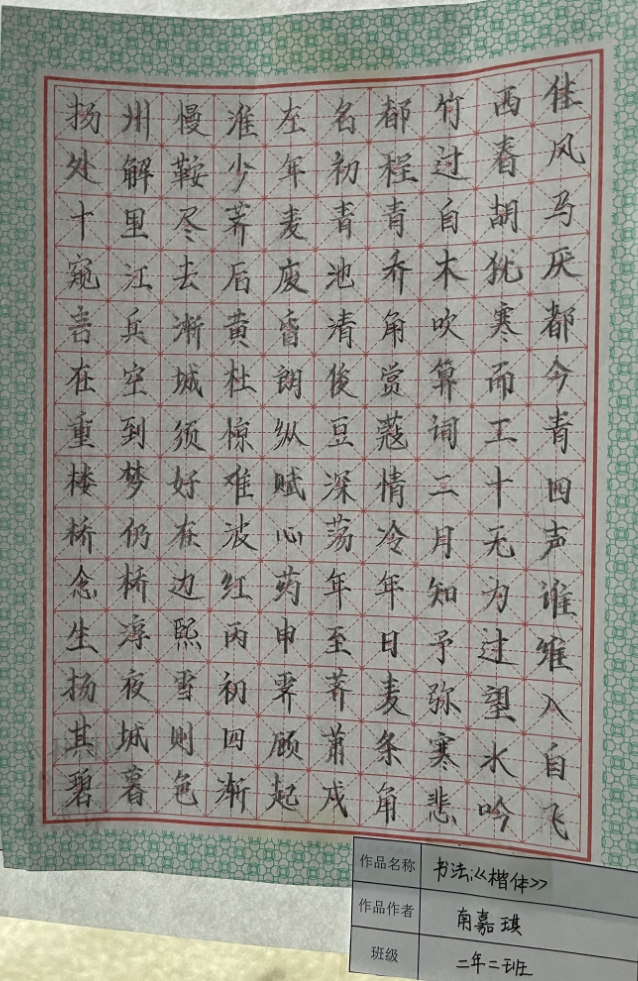 扬州慢淮左名都竹西佳
处解鞍少年初程过春风
十里尽荠麦青青自胡马
窥江去后废池乔木犹厌
言兵渐黄昏清角吹寒都
在空城杜朗俊赏算而今
重到须惊纵豆蔻词工青
楼梦好难赋深情二十四
桥仍在波心荡冷月无声
念桥边红药年年知为谁
生淳熙丙申至日予过维
扬夜雪初霁荠麦弥望入
其城则四顾萧条寒水自
碧暮色渐起戍角悲吟飞
作品名称 书法:《楷体》
作品作者 南嘉琪
班级 二年二班